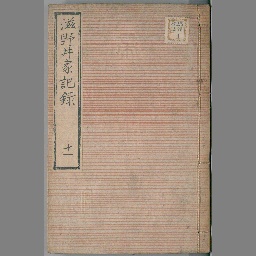 滋野井家記録
十一